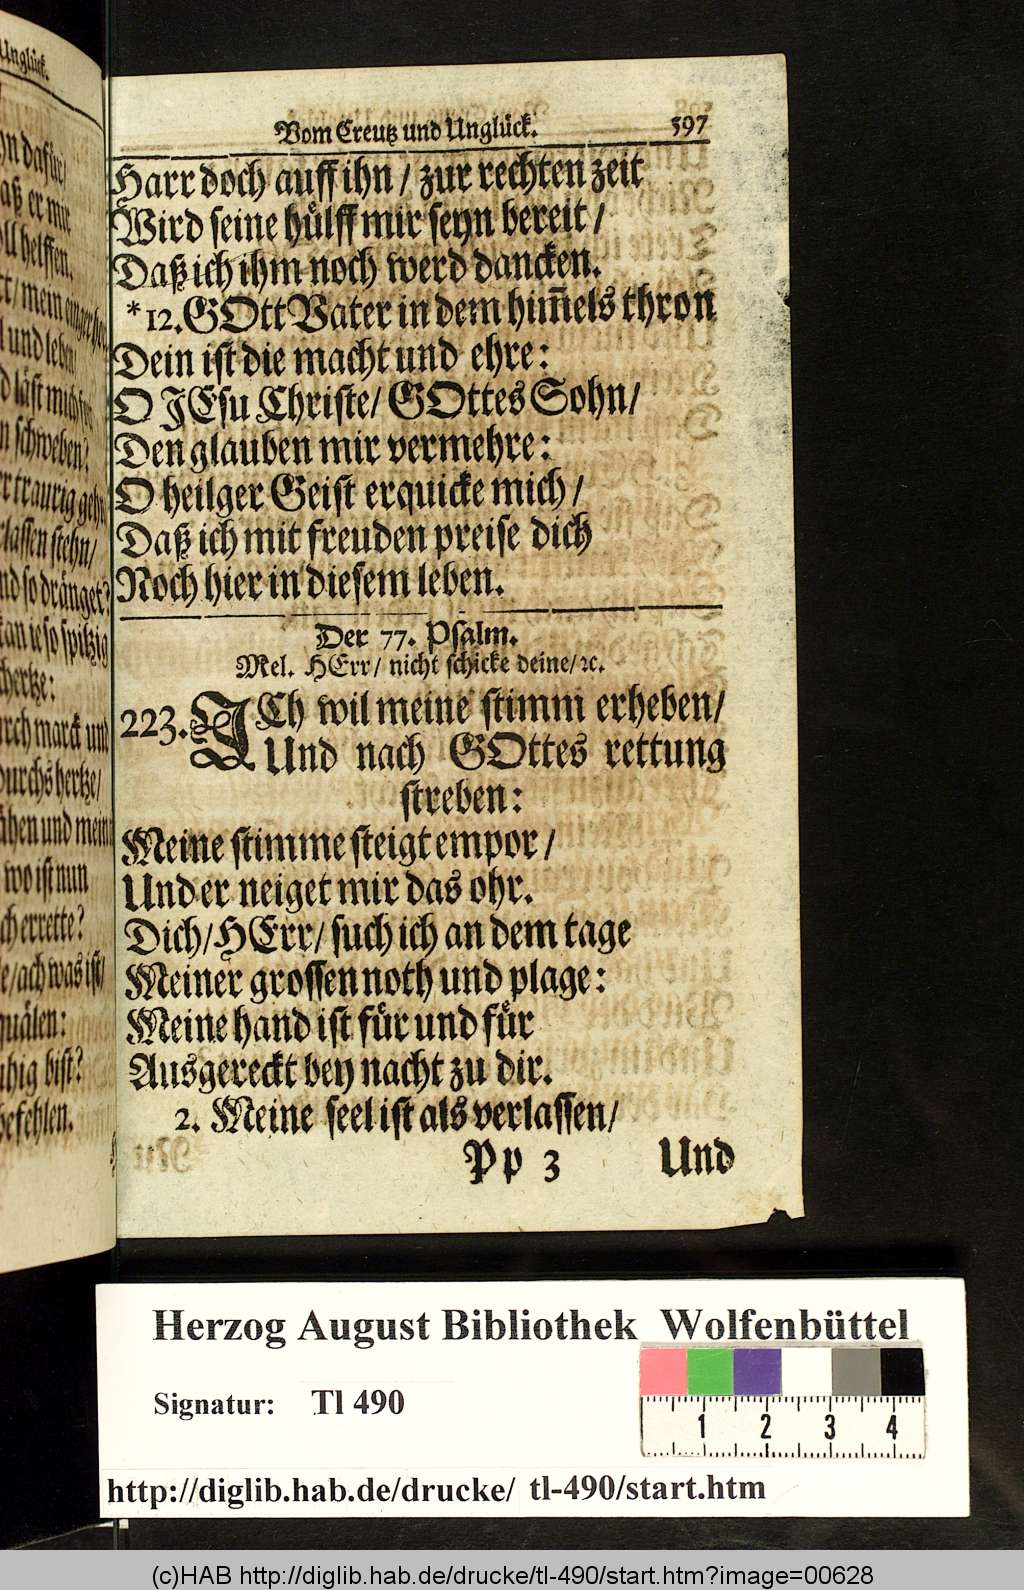 Unglück.
Vom Creutz und Unglück. 597
Harr doch auff ihn / zur rechten zeit
Wird seine hülff mir seyn bereit /
Daß ich ihm noch werd dancken.
*12. GOtt Vater in dem him̄els thron
Dein ist die macht und ehre:
O JEsu Christe/ GOttes Sohn/
Den glauben mir vermehre:
O heilger Geist erquicke mich /
Daß ich mit freuden preise dich
Noch hier in diesem leben.
Der 77. Psalm.
Mel. HErr/ nicht schicke deine/ ꝛc.
223. JCh wil meine stimm erheben/
Und nach GOttes rettung
streben:
Meine stimme steigt empor /
Und er neiget mir das ohr.
Dich/ HErr/ such ich an dem tage
Meiner grossen noth und plage:
Meine hand ist für und für
Ausgereckt bey nacht zu dir.
2. Meine seel ist als verlassen/
Pp 3 Und
Herzog August Bibliothek Wolfenbüttel
Signatur: Tl 490
1 2 3 4
http://diglib.hab.de/drucke/ tl-490/start.htm
(c)HAB http://diglib.hab.de/drucke/tl-490/start.htm?image=00628